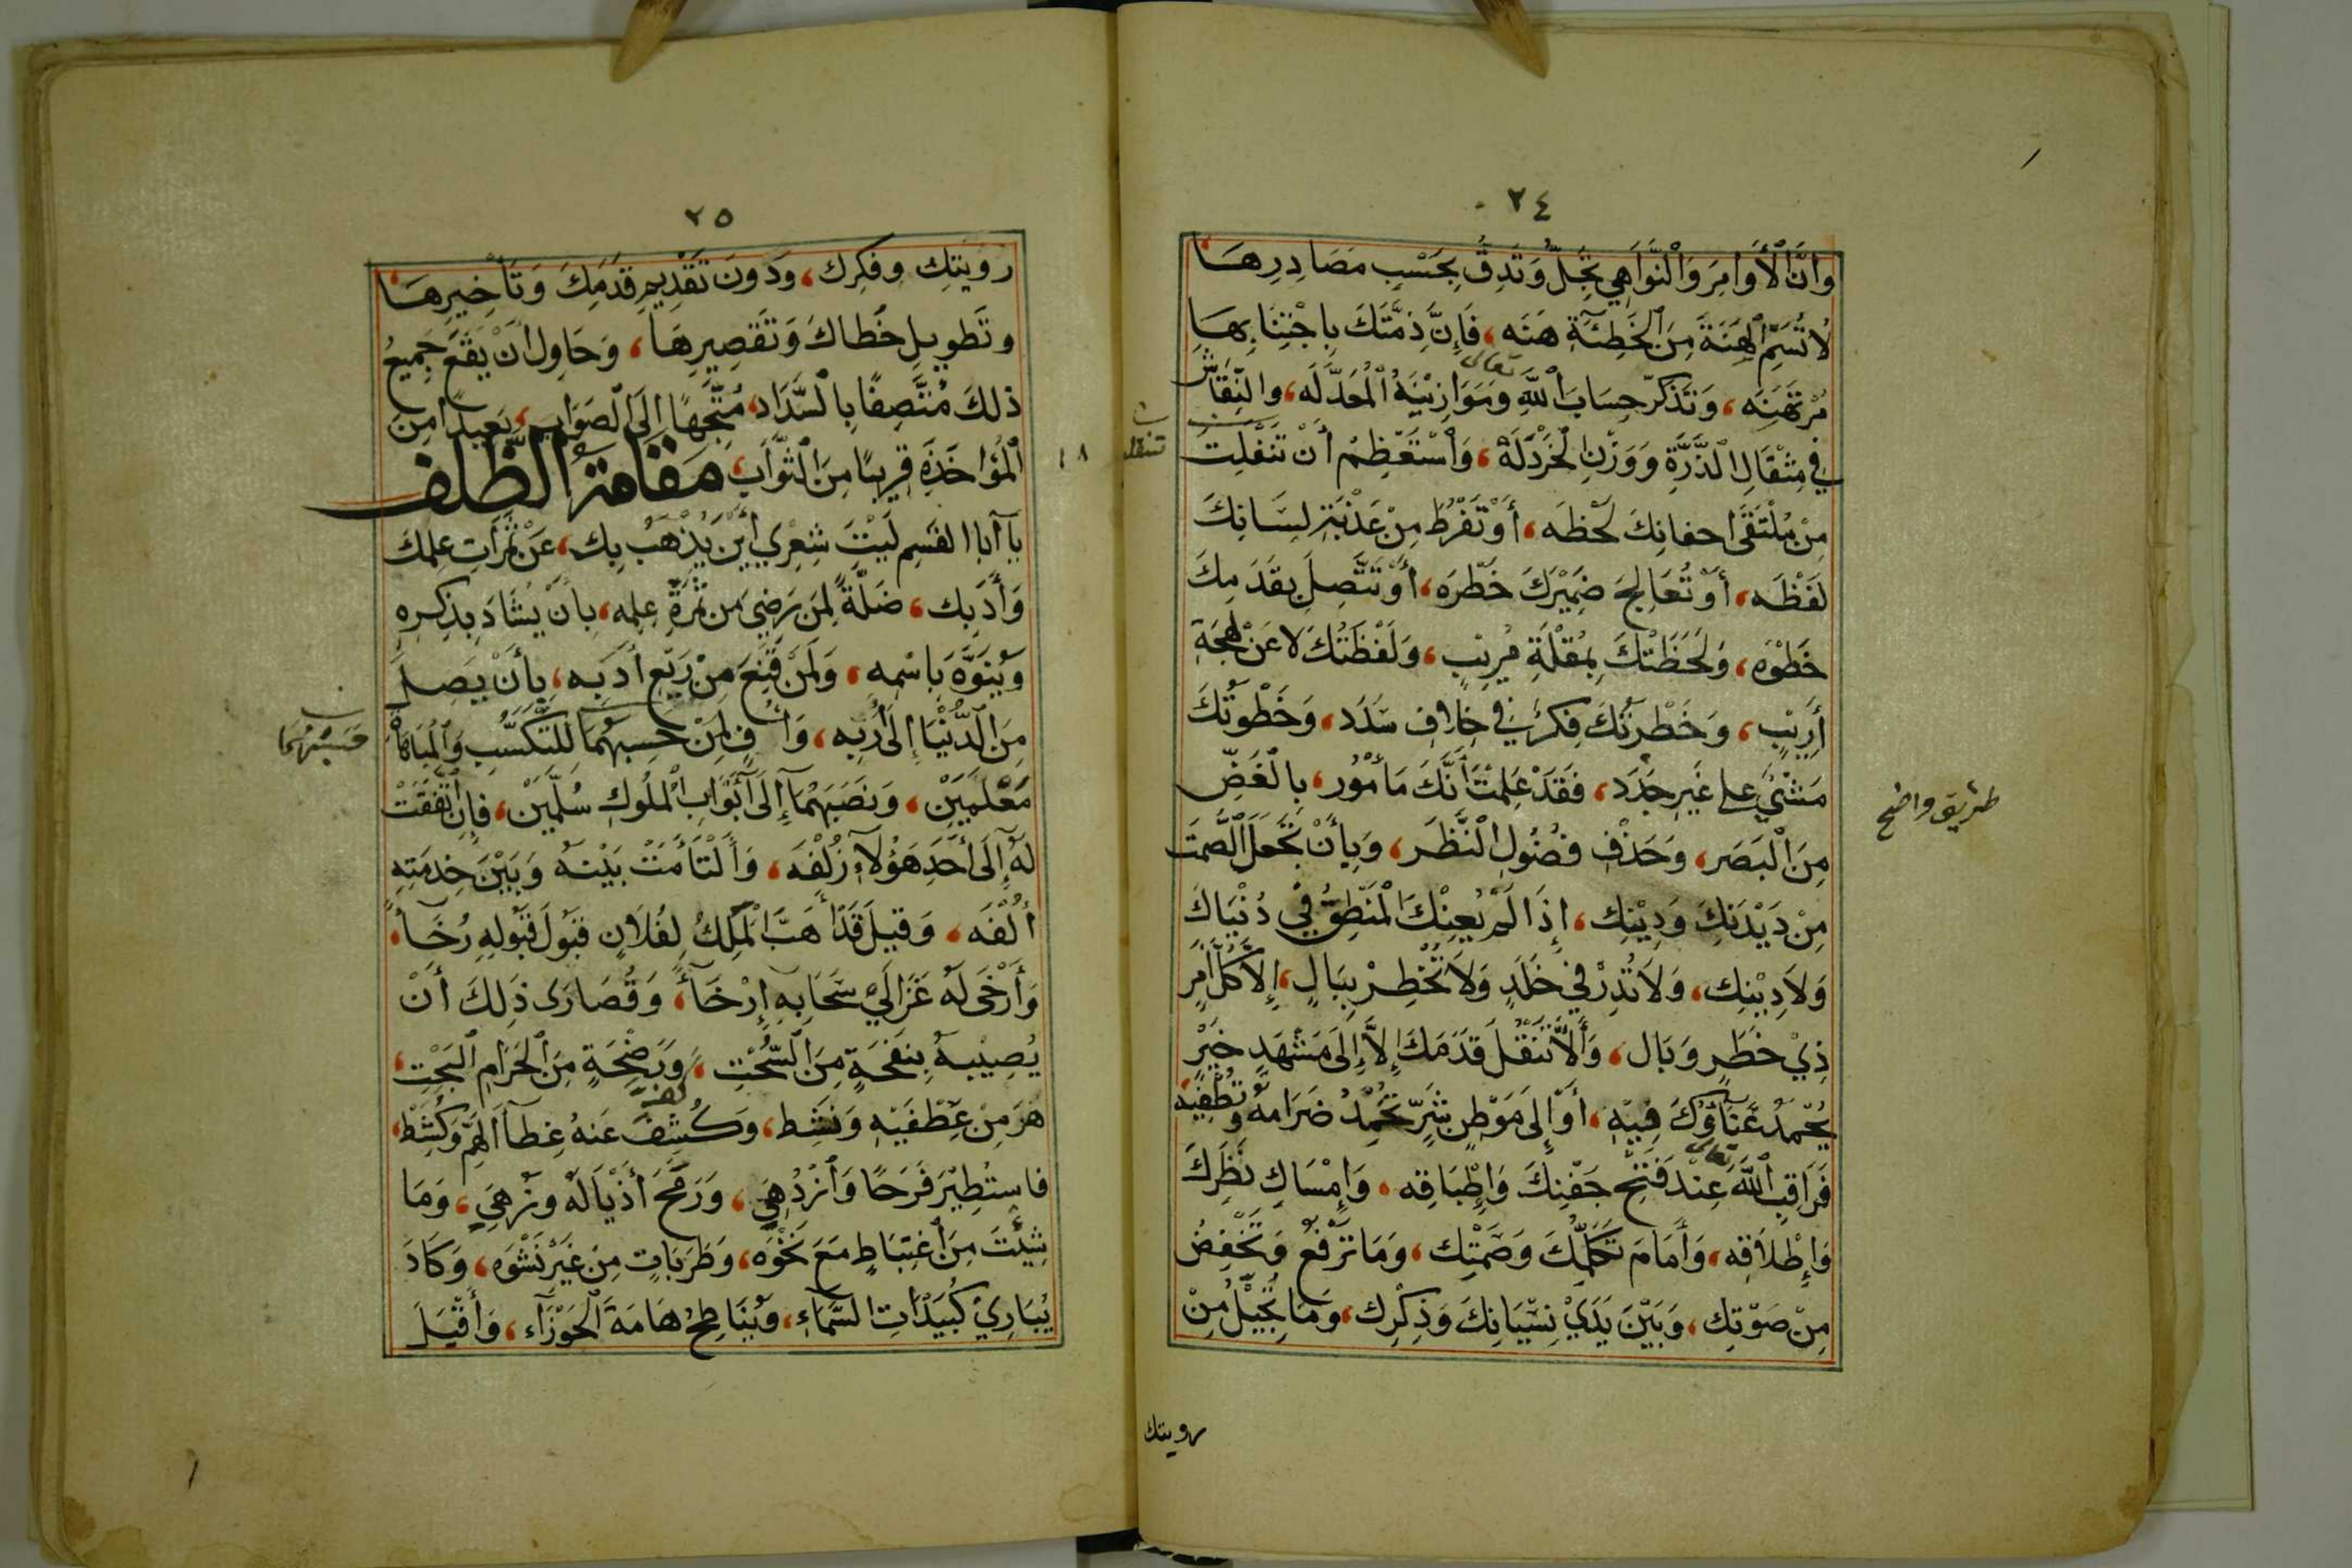 ٢٤
وَانَّ الْأَوَامِرَ وَالْنَّوَاهِي تَجِلُّ وَتَدِقُّ بِحَسْبِ مَصَادِرِهَا
لَا تُسَمِّ الْهَنَةَ مِنَ الْخَطِيْئَةِ هَنَه، فَإِنَّ ذِمَّتَكَ بِاجْتِنَابِهَا
مُرْتَهَنَه، وَتَذَكَّرْ حِسَابَ اللّٰهِ تعالى وَمَوَازِيْنَهُ الْمُعَدَّلَه، والنِّقَاشَ
فِي مِثْقَالِ الْذَّرَّةِ وَوَزْنِ الْخَرْدَلَةْ، وَاسْتَعْظِمْ أَنْ تَنْفَلِتَ
مِنْ مُلْتَقَى اجفانِكَ لَحْظَه، أَوْ تَفْرُطَ مِنْ عَذْبَةِ لِسَانِكَ
لَفْظَه، أَوْ تُعَالِجَ ضَمِيْرَكَ خَطْرَه، أَوْ تَتَّصِلَ بِقَدَمِكَ
خَطْوَه، وَلَحَظَتُكَ بِمُقْلَةِ مُرِيْبٍ، وَلَفْظَتُكَ لَا عَنْ لَهْجَةِ
أَرِيْبٍ، وَخَطْرَتُكَ فِكْرٌ فِي خِلَافِ سَدَد، وَخَطْوَتُكَ
مَشْيٌ على غَيْرِ جَدَد، فَقَدْ عَلِمْتَ أَنَّكَ مَأْمُوْر، بِالْغَضِّ
مِنَ الْبَصَر، وَحَذْفِ فُضُوْلِ الْنَّظَر، وَبِأَنْ تَجْعَلَ الصَّمْتَ
مِنْ دَيْدَنِكَ وَدِيْنِك، إِذَا لَمْ يُعِنْكَ الْمَنْطِقُ فِيْ دُنْيَاكَ
وَلَا دِيْنِك، وَلَا تُدِرْ فِيْ خَلَدٍ وَلَا تُخْطِرْ بِبَالٍ، إِلَّا كُلَّ أَمْرٍ
ذِيْ خَطَرٍ وَبَال، وَأَلَّا تَنْقُلَ قَدَمَكَ إِلَّا إِلَى مَشْهَدِ خَيْرٍ
يُحْمَدُ عَنَاؤُكَ فِيْهِ، أَوْ إِلَى مَوْطِنِ شَرٍّ تُخْمِدُ ضَرَامَهُ وتُطْفِيْهِ
فَرَاقِبِ اللّٰهَ تعالى عِنْدَ فَتْحِ جَفْنِكَ وَإِطْبَاقِه، وَإِمْسَاكِ نَظَرِكَ
وَإِطْلَاقِه، وَأَمَامَ تَكَلُّمِكَ وَصَمْتِك، وَمَا تَرْفَعُ وَتَخْفِضُ
مِنْ صَوْتِك، وَبَيْنَ يَدَيْ نِسْيَانِكَ وَذِكْرِك، وَمَا تُجِيْلُ مِنْ
رويتك
تنقلت
طريق واضح
٢٥
رويتِك وفكرِك، وَدونَ تَقْدِيمِ قدَمِكَ وَتَأْخِيرِهَا
وتَطويلِ خُطاكَ وَتَقصِيرِهَا، وَحَاوِل أَنْ يقَعَ جَمِيعُ
ذلكَ مُتَّصِفًا بِالسَّدَاد، مُتَّجِهًا إلَى الْصَوَاب، بَعِيدًا مِنَ
الْمُؤَاخَذَةِ قريبًا مِنَ الْثَّوَاب، مقامة الظلف
يَا أَبَا القَسِم لَيْتَ شِعْرِي أَيْنَ يَذْهَبُ بِك، عَنْ ثَمَرَاتِ عِلمكَ
وَأَدَبِك، ضَلَّةً لِمَن رَضِيَ مِن ثمرَةِ عِلِمه، بِأنْ يُشَادَ بِذِكرِهِ
وَيُنَوَّهَ بِاسْمِه، وَلَمَنْ قَنِعَ مِنْ رَيْعِ أدَبِه، بِأَنْ يَصِلَ
مِنَ الدُّنْيَا إِلَى أَرَبِه، وَأُفٍّ لِمَنْ حَسِبَهُمَا لِلتَّكَسُّبِ وَالْمُبَاهَاةِ
مَعْلَمَيْن، وَنَصَبَهُمَا إِلَى أَبْوَابِ الْمُلُوكِ سُلَّمَيْن، فَإِنِ اتَّفَقَتْ
لَهُ إِلَى أَحَدِ هَؤُلَاءِ زُلْفَه، وَالْتَأَمَتْ بَيْنَهُ وَبَيْنَ خِدْمَتِهِ
أُلْفَه، وَقِيلَ قَدْ أَهَبَّ الْمَلِكُ لِفُلَانٍ قَبُوْلَ قَبُوْلِهِ رُخَاءً،
وَأَرْخَى لَهُ عَزَالَيْ سَحَابِهِ إِرْخَاءً، وَقُصَارَى ذَلِكَ أَنْ
يُصِيْبَهُ بِنَفْحَةٍ مِنَ الْسُّحْتِ، وَرَضْخَةٍ مِنَ الْحَرَامِ الْبَحْتِ،
هَزَّ مِنْ عِطْفَيْهِ وَنَشِط، وَكُشِفَ عَنهُ غِطاءُ الهَمِّ وكُشِط،
فاستُطِيْرَ فَرَحًا وَازْدُهِيَ، وَرَمَحَ أَذْيَالَهُ وَزُهِيَ، وَمَا
شِئْتَ مِنَ اغْتِبَاطٍ مَعَ نَخْوَه، وَطَرَبَاتٍ مِنْ غَيْرِ نَشْوَه، وَكَادَ
يُبَارِيْ كُبَيْدَاتِ السَّمَاءِ، وَيُنَاطِحُ هَامَةَ الْجَوْزَآء، وَأَقْبَلَ
١٨